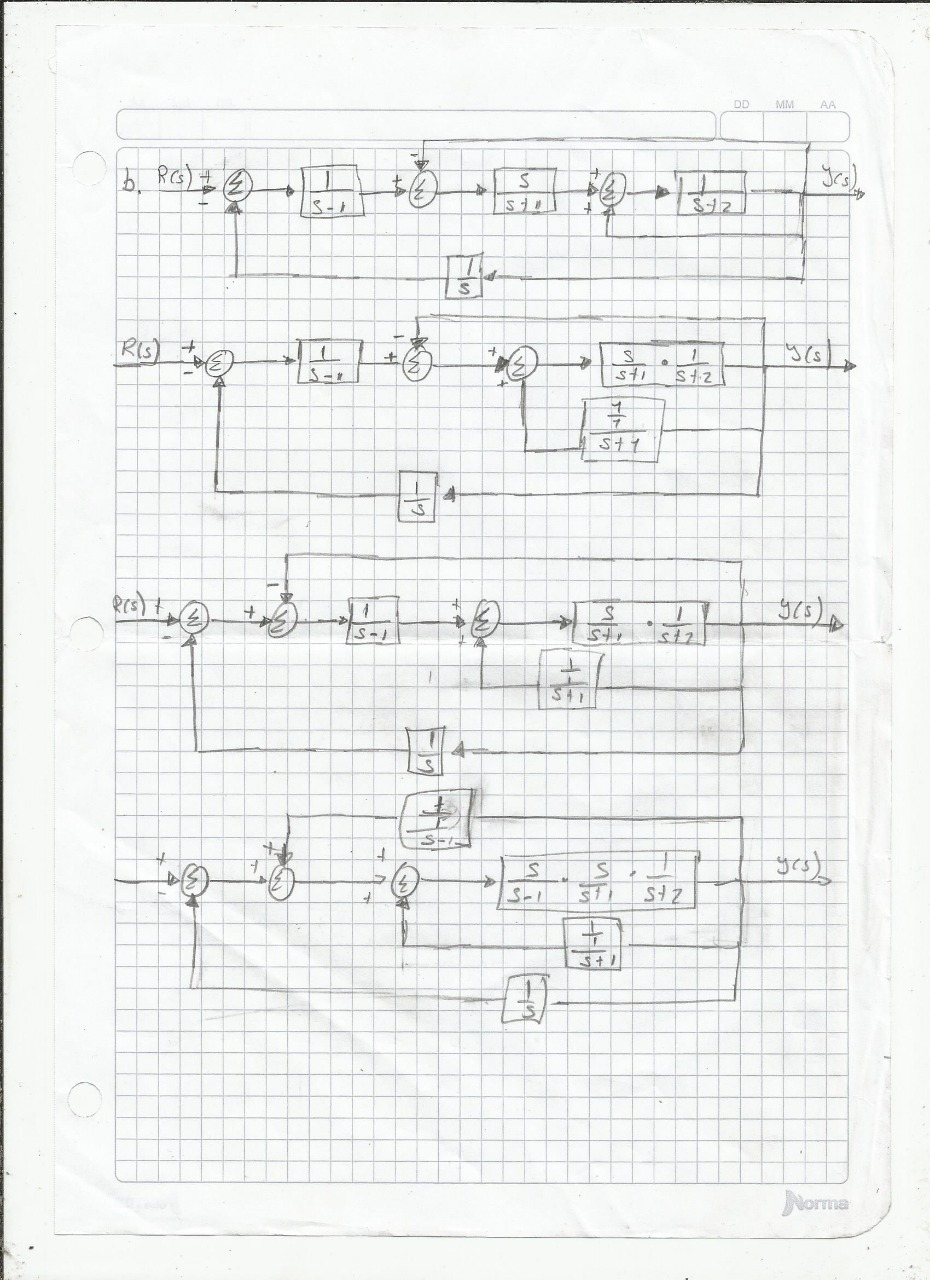 DD MM AA
b. R(s) + - Σ 1/(s-1) + - Σ s/(s+1) + + Σ 1/(s+2) Y(s)
1/s
R(s) + - Σ 1/(s-1) + - Σ + + Σ s/(s+1) · 1/(s+2) Y(s)
1/1/(s+1)
1/s
R(s) + - Σ + - Σ 1/(s-1) + + Σ s/(s+1) · 1/(s+2) Y(s)
1/1/(s+1)
1/s
1/1/(s-1)
+ - Σ + + Σ + + Σ s/(s-1) · s/(s+1) · 1/(s+2) Y(s)
1/1/(s+1)
1/s
Norma